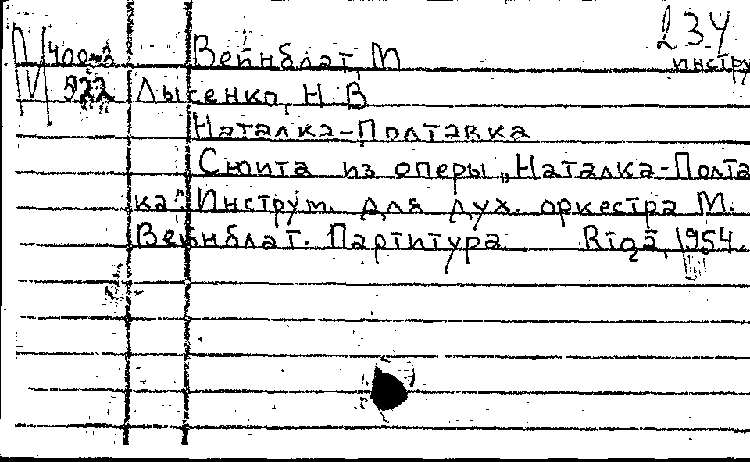 234
М 400м3 Вейнблат, М инстру
522 Лысенко, Н В
Наталка-Полтавка
Сюита из оперы „Наталка-Полта
ка" Инструм. для дух. оркестра М.
Вейнблат. Партитура Rīgā, 1954.